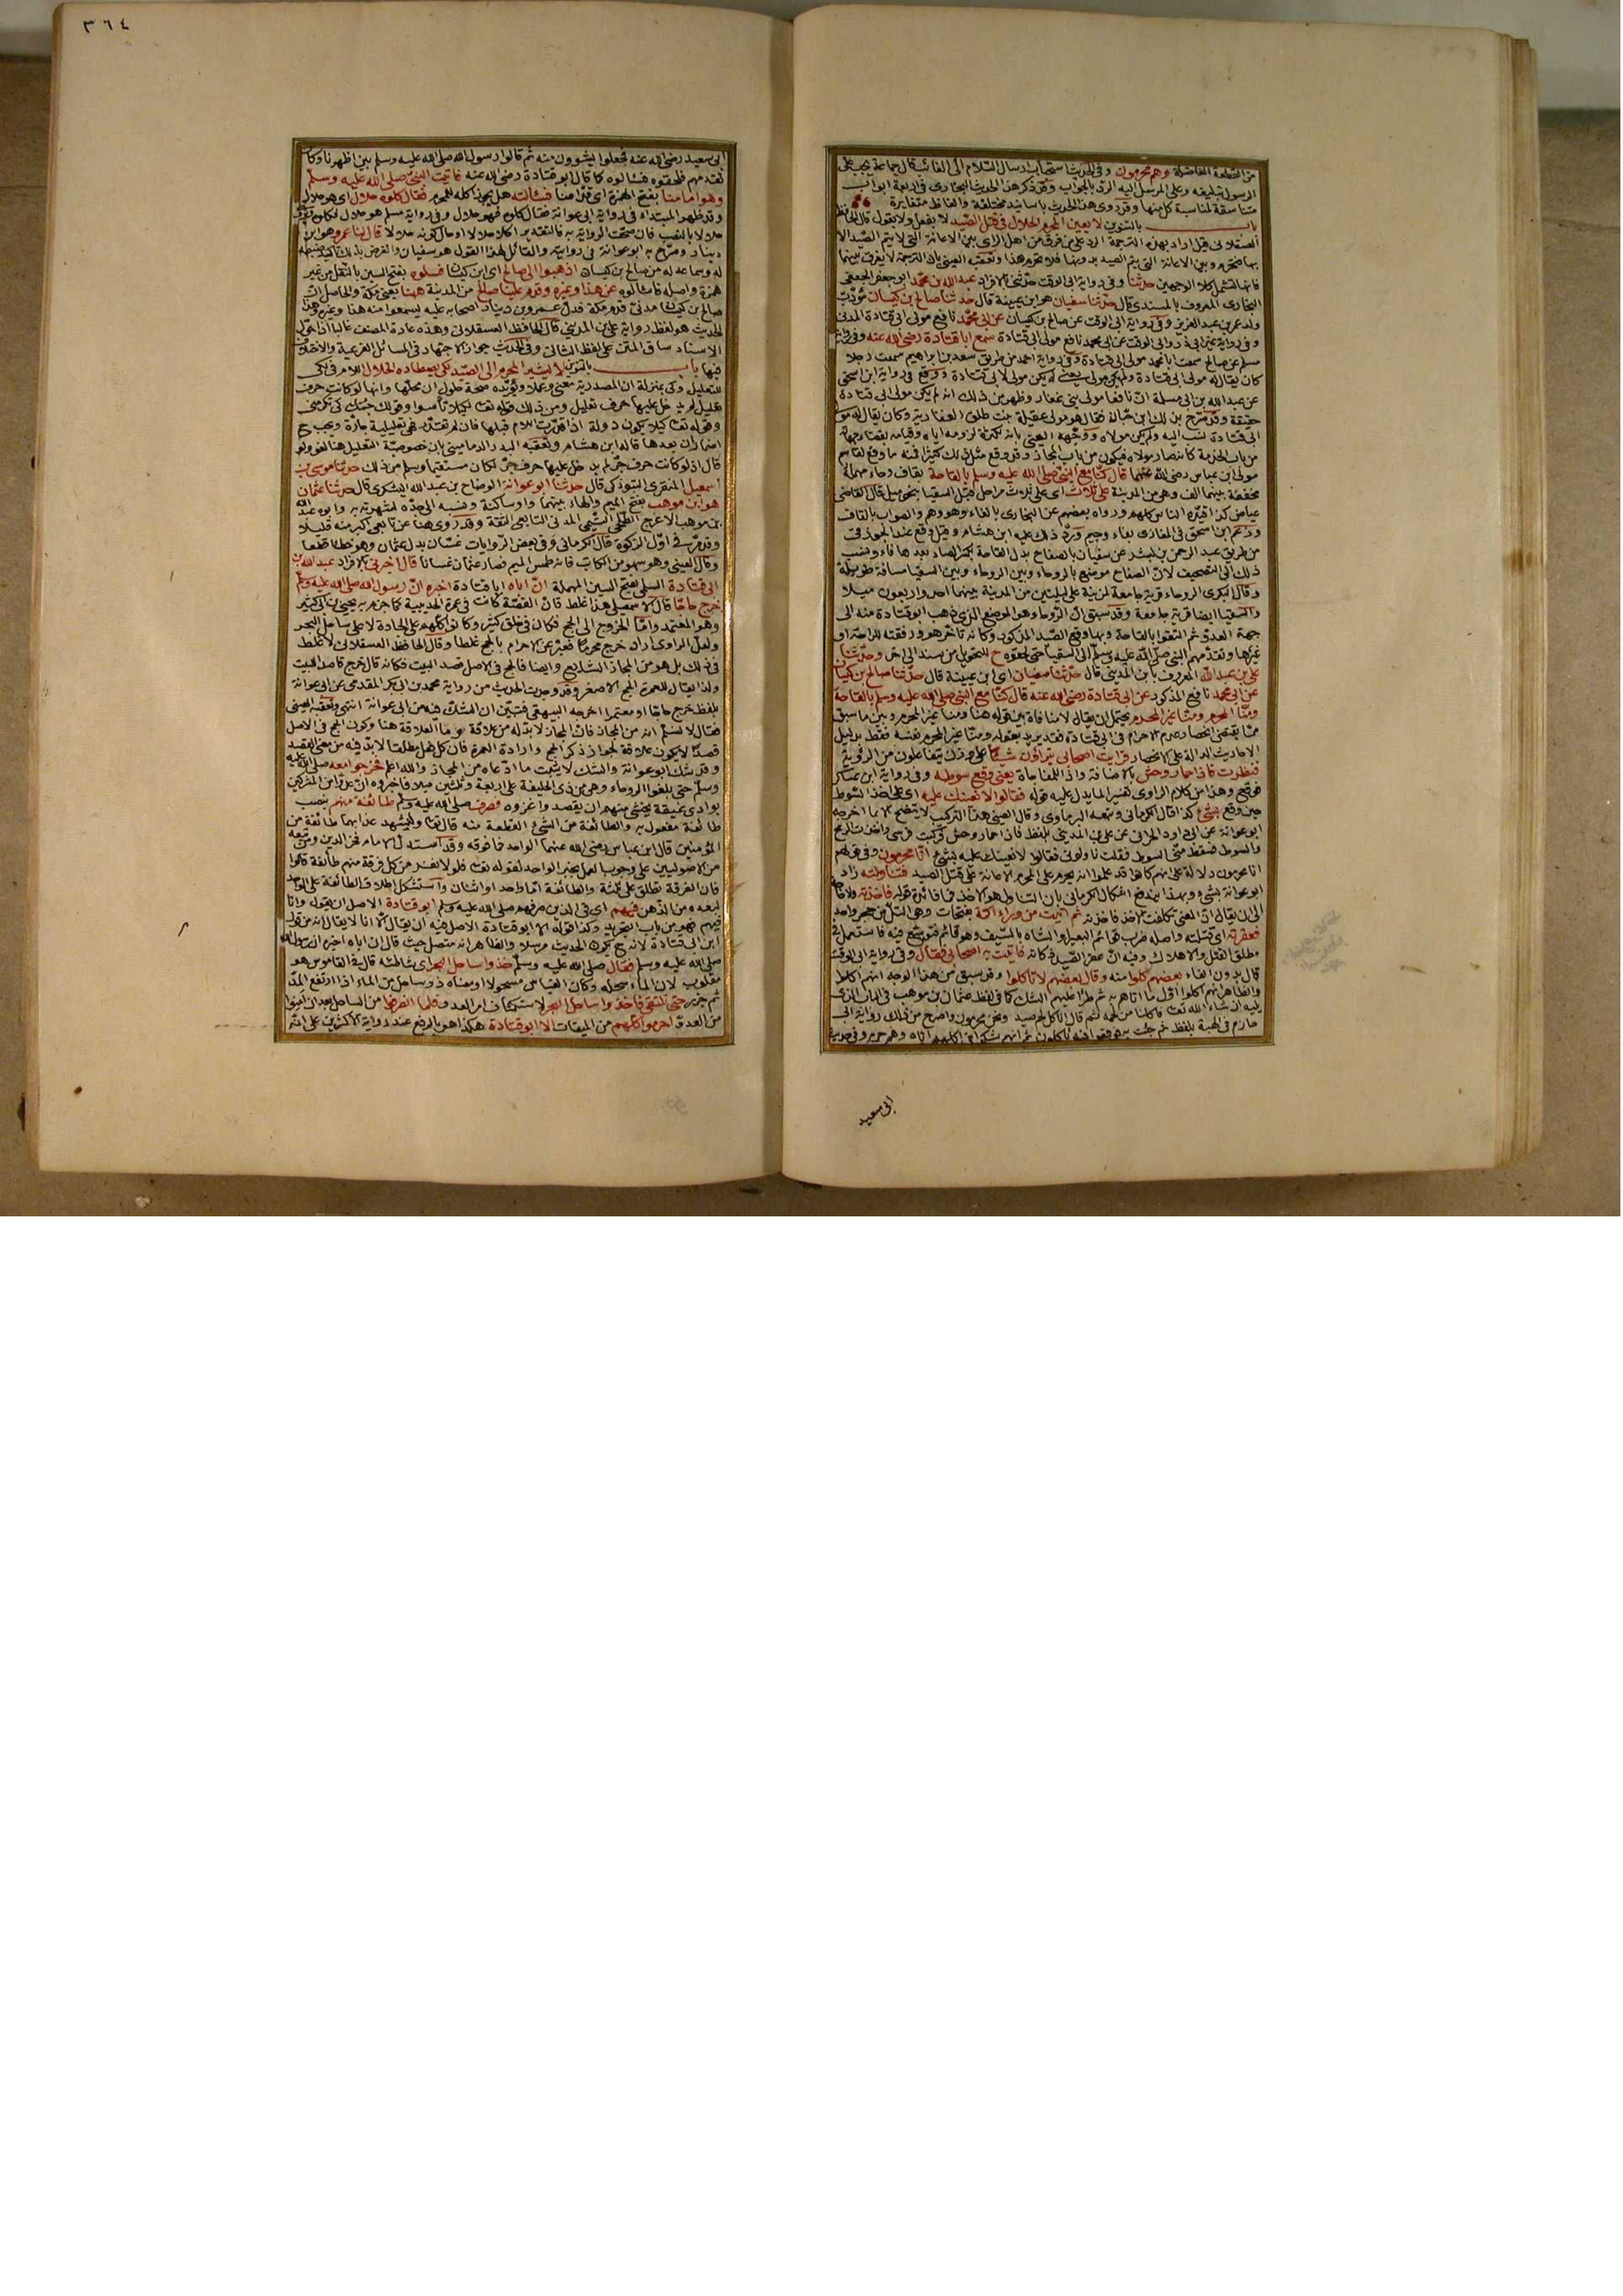 من القطعة الفاضلة وهم محرمون وفي الحديث استحباب ارسال السلام الى الغائب قال جماعة يجب على
الرسول تبليغه وعلى المرسل اليه الرد بالجواب وقد ذكر هذا الحديث البخارى في اربعة ابواب
متناسقة لمناسبة كل منها وقد روى هذا الحديث باسانيد مختلفة والفاظ متغايرة
باب بالتنوين لا يعين المحرم الحلال في قتل الصيد لا بفعل ولا بقول قال الحافظ
العسقلانى قيل اراد بهذه الترجمة الرد على من فرق من اهل الراى بين الاعانة التى لا يتم الصيد الا
بها فتحرم وبين الاعانة التى يتم الصيد بدونها فلا تحرم هذا وتعقبه العينى بان الترجمة لا يفرق بينهما
فانها تشتمل كلا الوجهين حدثنا وفي رواية ابى الوقت حدثنى بالافراد عبد الله بن محمد ابو جعفر الجعفى
البخارى المعروف بالمسندى قال حدثنا سفيان هو ابن عيينة قال حدثنا صالح بن كيسان مؤدب
ولد عمر بن عبد العزيز وفي رواية ابى الوقت عن صالح بن كيسان عن ابى محمد نافع مولى ابى قتادة المدنى
وفي رواية غير ابى ذر وابى الوقت عن ابى محمد نافع مولى ابى قتادة سمع ابا قتادة رضى الله عنه وفي رواية
مسلم عن صالح سمعت ابا محمد مولى ابى قتادة وفي رواية احمد من طريق سعد بن ابراهيم سمعت رجلا
كان يقال له مولى ابى قتادة ولم يكن مولى يعنى لم يكن مولى لابى قتادة ووقع في رواية ابن اسحق
عن عبد الله بن ابى سلمة ان نافعا مولى بنى غفار وظهر من ذلك انه لم يكن مولى ابى قتادة
حقيقة وقد صرح بذلك ابن حبان فقال هو مولى عقيلة بنت طلق الغفارية وكان يقال له مولى
ابى قتادة نسب اليه ولم يكن مولاه ووجهه العينى بانه لكثرة لزومه اياه وقيامه بقضاء مهماته
من باب الخدمة كانه صار مولاه فيكون من باب المجاز وقد وقع مثل ذلك كثيرا فمنه ما وقع لمقسم
مولى ابن عباس رضى الله عنهما قال كنا مع النبى صلى الله عليه وسلم بالقاحة بقاف وحاء مهملة
مخففة بينهما الف وهى من المدينة على ثلاث اى على ثلاث مراحل قبل السقيا بنحو ميل قال القاضى
عياض كذا قيده الناس كلهم ورواه بعضهم عن البخارى بالفاء وهو وهم والصواب بالقاف
وزعم ابن اسحق في المغازى بفاء وجيم ورد ذلك عليه ابن هشام وقيل وقع عند الجوزقى
من طريق عبد الرحمن بن بشر عن سفيان بالصفاح بدل القاحة بكسر الصاد بعدها فاء ونسب
ذلك الى التصحيف لان الصفاح موضع بالروحاء وبين الروحاء وبين السقيا مسافة طويلة
وقال البكرى الروحاء قرية جامعة لمزينة على ليلتين من المدينة بينهما احد واربعون ميلا
والسقيا ايضا قرية جامعة وقد سبق ان الروحاء هو الموضع الذى ذهب ابو قتادة منه الى
جهة العدو ثم التقوا بالقاحة وبها وقع الصيد المذكور وكانه تاخر هو ورفقته للراحة او
غيرها وتقدمهم النبى صلى الله عليه وسلم الى السقيا حتى لحقوه ح للتحويل من سند الى اخر وحدثنا
على بن عبد الله المعروف بابن المدينى قال حدثنا سفيان اى ابن عيينة قال حدثنا صالح بن كيسان
عن ابى محمد نافع المذكور عن ابى قتادة رضى الله عنه قال كنا مع النبى صلى الله عليه وسلم بالقاحة
ومنا المحرم ومنا غير المحرم يحتمل ان يقال لا منافاة بين قوله هنا ومنا غير المحرم وبين ما سبق
مما يقتضى انحصار عدم الاحرام في ابى قتادة فقد يريد بقوله ومنا غير المحرم نفسه فقط بدليل
الاحاديث الدالة على الانحصار فرايت اصحابى يتراؤن شيئا على وزن يتفاعلون من الرؤية
فنظرت فاذا حمار وحش بالاضافة واذا للمفاجاة يعنى وقع سوطه وفي رواية ابن عساكر
فوقع وهذا من كلام الراوى تفسير لما يدل عليه قوله فقالوا لا نعينك عليه اى على اخذ السوط
حين وقع بشئ كذا قال الكرمانى وتبعه البرماوى وقال العينى هذا التركيب لا يتضح الا بما اخرجه
ابو عوانة عن ابى داود الحرانى عن على بن المدينى بلفظ فاذا حمار وحش فركبت فرسى واخذت الرمح
والسوط فسقط منى السوط فقلت ناولونى فقالوا لا نعينك عليه بشئ انا محرمون وفي قولهم
انا محرمون دلالة على انهم كانوا قد علموا انه يحرم على المحرم الاعانة على قتل الصيد فتناولته زاد
ابو عوانة بشئ وبهذا يندفع اشكال الكرمانى بان التناول هو الاخذ فما فائدة قوله فاخذته ولا حاجة
الى ان يقال ان المعنى تكلفت الاخذ فاخذته ثم اتيت من وراء اكمة بفتحات وهى التل من حجر واحد
فعقرته اى قتلته واصله ضرب قوائم البعير او الشاة بالسيف وهو قائم فتوسع فيه فاستعمل في
مطلق القتل والاهلاك وفيه ان عقر الصيد ذكاته فاتيت به اصحابى فقال وفي رواية ابى الوقت
قال بدون الفاء بعضهم كلوا منه وقال بعضهم لا تاكلوا وقد سبق من هذا الوجه انهم اكلوا
والظاهر انهم اكلوا اول ما اتاهم به ثم طرا عليهم الشك كما في لفظ عثمان بن موهب في الباب الذى
يليه ان شاء الله تعا فاكلنا من لحمه ثم قال اناكل لحم صيد ونحن محرمون واصرح من ذلك رواية ابى
حازم في الهبة بلفظ ثم جئت به فوقعوا فيه ياكلون ثم انهم شكوا في اكلهم اياه وهم حرم وفي حديث
ابى سعيد
٣٦٤
ابى سعيد رضى الله عنه فجعلوا يشوون منه ثم قالوا رسول الله صلى الله عليه وسلم بين اظهرنا وكان
تقدمهم فلحقوه فسالوه كما قال ابو قتادة رضى الله عنه فاتيت النبى صلى الله عليه وسلم
وهو امامنا بفتح الهمزة اى قدامنا فسالته هل يجوز اكله للمحرم فقال كلوه حلال اى هو حلال
وقد ظهر المبتداء في رواية ابى عوانة فقال كلوه فهو حلال وفي رواية مسلم هو حلال فكلوه
حلالا بالنصب فان صحت الرواية به فالتقدير اكلا حلالا او حال كونه حلالا قال لنا عمرو هو ابن
دينار وصرح به ابو عوانة في روايته والقائل لهذا القول هو سفيان والغرض بذلك تاكيد ضبطه
له وسماعه له من صالح بن كيسان اذهبوا الى صالح اى ابن كيسان فسلوه بفتح السين بالنقل من غير
همزة واصله فاسالوه عن هذا وغيره وقدم علينا صالح من المدينة ههنا يعنى مكة والحاصل ان
صالح بن كيسان مدنى قدم مكة فدل عمرو بن دينار اصحابه عليه ليسمعوا منه هذا وغيره وهذا
الحديث هو لفظ رواية على بن المدينى قال الحافظ العسقلانى وهذه عادة المصنف غالبا اذا حول
الاسناد ساق المتن على لفظ الثانى وفي الحديث جواز الاجتهاد في المسائل الفرعية والاختلاف
فيها باب بالتنوين لا يشير المحرم الى الصيد لكى يصطاده الحلال اللام في لكى
للتعليل وكى بمنزلة ان المصدرية معنى وعملا ويؤيده صحة حلول ان محلها وانها لو كانت حرف
تعليل لم يدخل عليها حرف تعليل ومن ذلك قوله تعا لكيلا تاسوا وقولك جئتك كى تكرمنى
وقوله تعا كيلا يكون دولة اذا قدرت اللام قبلها فان لم تقدر فهى تعليلية جارة ويجب ح
اضمار ان بعدها قاله ابن هشام وتعقبه البدر الدمامينى بان خصوصية التعليل هنا لغو ولو
قال اذ لو كانت حرف جر لم يدخل عليها حرف جر لكان مستقيما وسلم من ذلك حدثنا موسى بن
اسمعيل المنقرى التبوذكى قال حدثنا ابو عوانة الوضاح بن عبد الله اليشكرى قال حدثنا عثمان
هو ابن موهب بفتح الميم والهاء بينهما واو ساكنة ونسبه الى جده لشهرته به وابوه عبد الله
بن موهب الاعرج الطلحى التيمى المدنى التابعى الثقة وقد روى هنا عن تابعى اكبر منه قليلا
وقد مر في اول الزكوة قال الكرمانى وفي بعض الروايات غسان بدل عثمان وهو خطا قطعا
وقال العينى وهو سهو من الكاتب فانه طمس الميم فصار عثمان غسانا قال اخبرنى بالافراد عبد الله بن
ابى قتادة السلمى بفتح السين المهملة ان اباه ابا قتادة اخبره ان رسول الله صلى الله عليه وسلم
خرج حاجا قال الاسمعيلى هذا غلط فان القصة كانت في عمرة الحديبية كما جزم به يحيى بن ابى كثير
وهو المعتمد واما الخروج الى الحج فكان في خلق كثير وكانوا كلهم على الجادة لا على ساحل البحر
ولعل الراوى اراد خرج محرما فعبر عن الاحرام بالحج غلطا وقال الحافظ العسقلانى لا غلط
في ذلك بل هو من المجاز الشايع وايضا فالحج في الاصل قصد البيت فكانه قال خرج قاصدا للبيت
ولذا يقال للعمرة الحج الاصغر وقد وجدت الحديث من رواية محمد بن ابى بكر المقدمى عن ابى عوانة
بلفظ خرج حاجا او معتمرا اخرجه البيهقى فتبين ان الشك فيه من ابى عوانة انتهى وتعقبه العينى
فقال لا نسلم انه من المجاز فان المجاز لا بد له من علاقة وما العلاقة هنا وكون الحج في الاصل
قصدا لا يكون علاقة لجواز ذكر الحج وارادة العمرة فان كل فعل مطلقا لا بد فيه من معنى القصد
وقد شك ابو عوانة والشك لا يثبت ما ادعاه من المجاز والله اعلم فخرجوا معه صلى الله عليه
وسلم حتى بلغوا الروحاء وهى من ذى الحليفة على اربعة وثلثين ميلا فاخبروه ان عدوا من المشركين
بوادى غيقة يخشى منهم ان يقصدوا غزوه فصرف صلى الله عليه وسلم طائفة منهم بنصب
طائفة مفعول به والطائفة من الشئ القطعة منه قال تعا وليشهد عذابهما طائفة من
المؤمنين قال ابن عباس رضى الله عنهما الواحد فما فوقه وقد استدل الامام فخر الدين ومن تبعه
من الاصوليين على وجوب العمل بخبر الواحد لقوله تعا فلولا نفر من كل فرقة منهم طائفة قالوا
فان الفرقة تطلق على ثلثة والطائفة اما واحد او اثنان واستشكل اطلاق الطائفة على الواحد
لبعده من الذهن فيهم اى في الذين صرفهم صلى الله عليه وسلم ابو قتادة الاصل ان يقول وانا
فيهم فهو من باب التجريد وكذا قوله الا ابو قتادة الاصل فيه ان يقال الا انا لا يقال انه من قول
ابن ابى قتادة لانه ح يكون الحديث مرسلا والظاهر انه متصل حيث قال ان اباه اخبره ان رسول الله
صلى الله عليه وسلم فقال صلى الله عليه وسلم خذوا ساحل البحر اى شاطئه قال في القاموس هو
مقلوب لان الماء سحله وكان القياس مسحولا او معناه ذو ساحل من الماء اذا ارتفع المد
ثم جزر حتى نلتقى فاخذوا ساحل البحر لاستكشاف امر العدو فلما انصرفوا من الساحل بعد ان امنوا
من العدو احرموا كلهم من الميقات الا ابو قتادة هكذا هو بالرفع عند رواية الاكثرين على انه